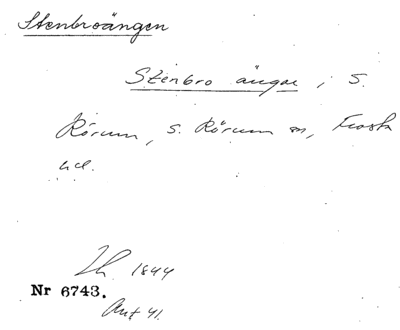 Stenbroängen
Stenbro ängar, i S.
Rörum, S. Rörum sn, Frosta
hd.
1844
Nr 6743.
Ant 41.